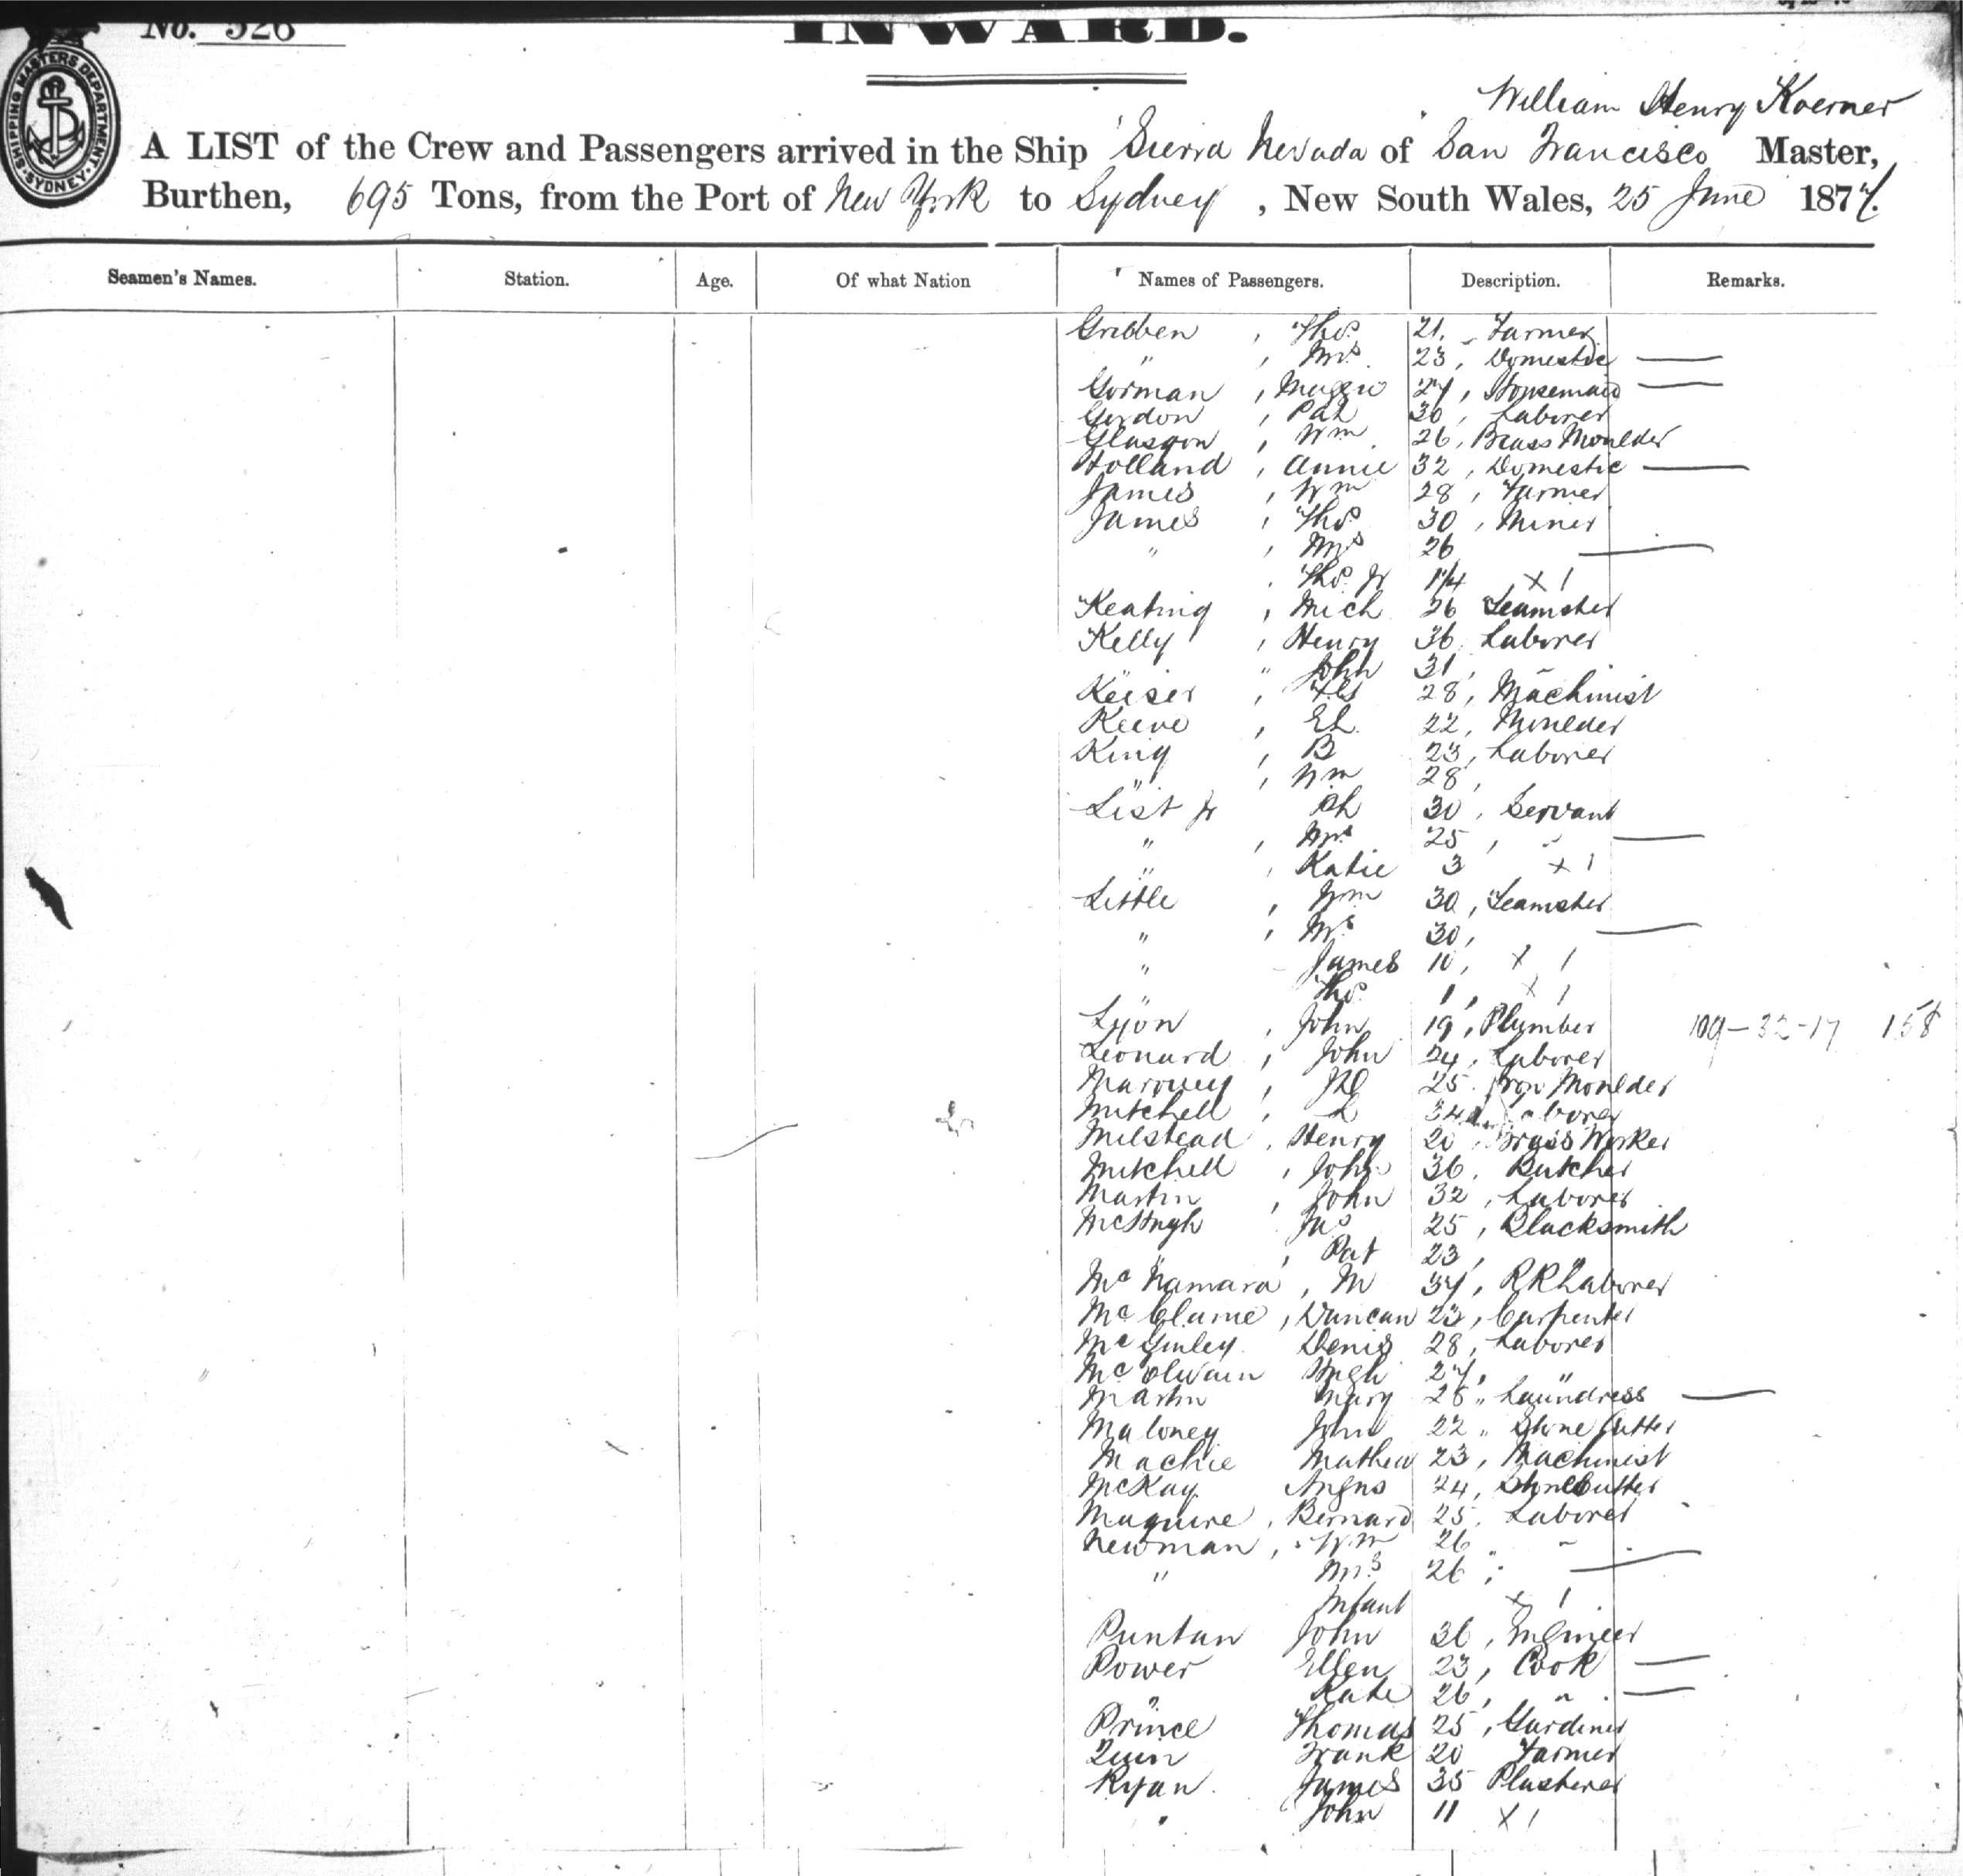 No. 526
INWARD.
SHIPPING MASTERS DEPARTMENT
SYDNEY
William Henry Koerner
A LIST of the Crew and Passengers arrived in the Ship "Sierra Nevada" of San Francisco Master,
Burthen, 695 Tons, from the Port of New York to Sydney, New South Wales, 25 June 1877.
Seamen's Names. Station. Age. Of what Nation Names of Passengers. Description. Remarks.
Gribben , Thos. 21, Farmer
" , Mrs. 23, Domestic —
Gorman , Maggie 27, Housemaid —
Gordon , Pat 30, Laborer
Glasgow , Wm 26, Brass Moulder
Holland , Annie 32, Domestic —
James , Wm 28, Farmer
James , Thos 30, Miner
" , Mrs 26 —
, Thos. Jr 1 1/4 x 1
Keating , Mich 26 Teamster
Kelly , Henry 36, Laborer
" John 31, "
Keiser , 28, Machinist
Keeve , 22, Moulder
King , B 23, Laborer
" , Wm 28, "
List Jr Ch 30, Servant
" , Mrs 25, " —
" , Katie 3 x 1
Little , Wm 30, Teamster
" , Mrs 30, —
" James 10, x 1
Thos. 1, x 1
Lyon , John 19, Plumber 109-32-17 158
Leonard , John 24, Laborer
25. Iron Moulder
Mitchell , L 34, Laborer
Milstead , Henry 20, Brass Worker
Mitchell , John 36, Butcher
Martin , John 32, Laborer
McHugh Jas 25, Blacksmith
" , Pat 23, "
McNamara , M 37, RR Laborer
Duncan 23, Carpenter
McGinley Denis 28, Laborer
Hugh 27, "
Martin Mary 28 " Laundress —
Maloney John 22 " Stone Cutter
Machie Mathew 23, Machinist
McKay Angus 24, Stonecutter
Maguire , Bernard 25, Laborer
Newman , Wm 26 " "
" Mrs 26, —
Infant x 1
Puntan John 36, Engineer
Power Ellen 23, Cook —
" Kate 26, " —
Prince Thomas 25, Gardener
Quin Frank 20 Farmer
Ryan James 35 Plasterer
" John 11 x 1